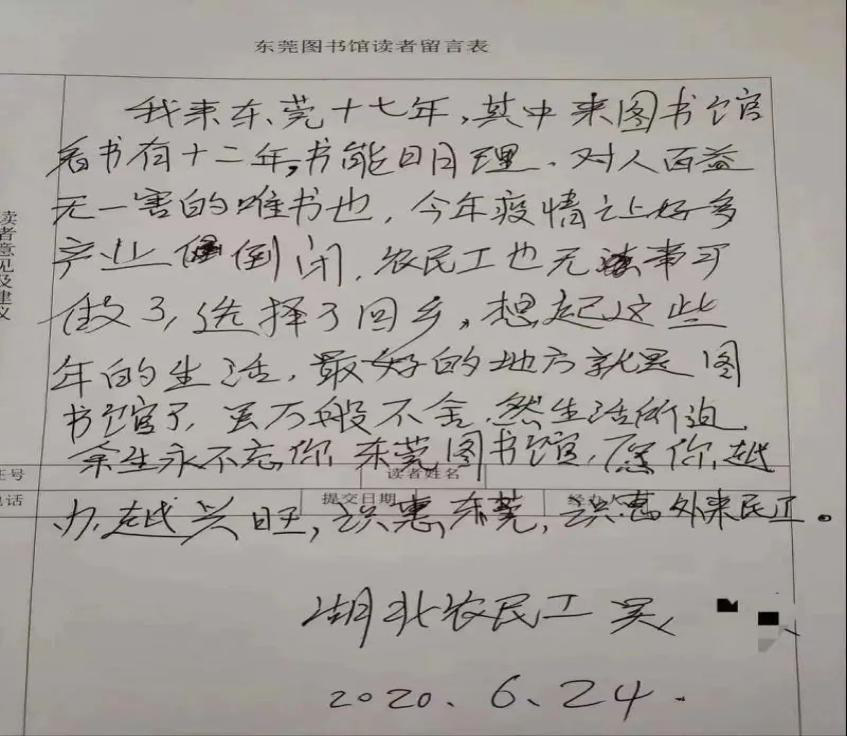 东莞图书馆读者留言表
我来东莞十七年，其中来图书馆
看书有十二年，书能明理、对人百益
无一害的唯书也，今年疫情让好多
产业倒闭，农民工也无事可
做了，选择了回乡，想起这些
年的生活，最好的地方就是图
书馆了，虽万般不舍，然生活所迫，
余生永不忘你，东莞图书馆，愿你越
办越兴旺，识惠东莞，识惠外来民工。
读者意见及建议
证号
读者姓名
电话
提交日期
经办人
湖北农民工 吴
2020.6.24.